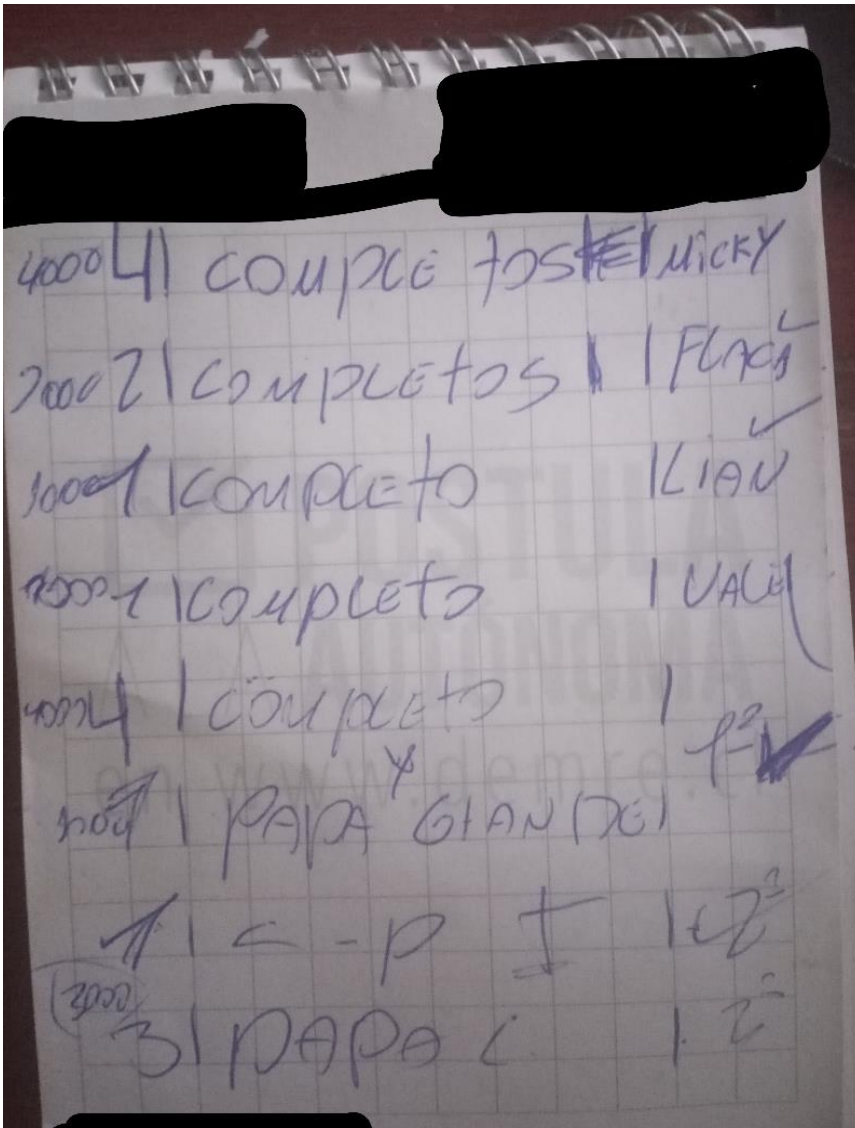 4000 4 | COMPLETOS | MICKY
2000 2 | COMPLETOS | | FLACA
1000 1 | COMPLETO | LIAN
1 | COMPLETO | VALE
4000 4 | COMPLETO |
1 | PAPA Y GRANDE |
1 | C - P I |
3000
3 | PAPA C. |
POSTULA
AUTÓNOMA
en www.demre.